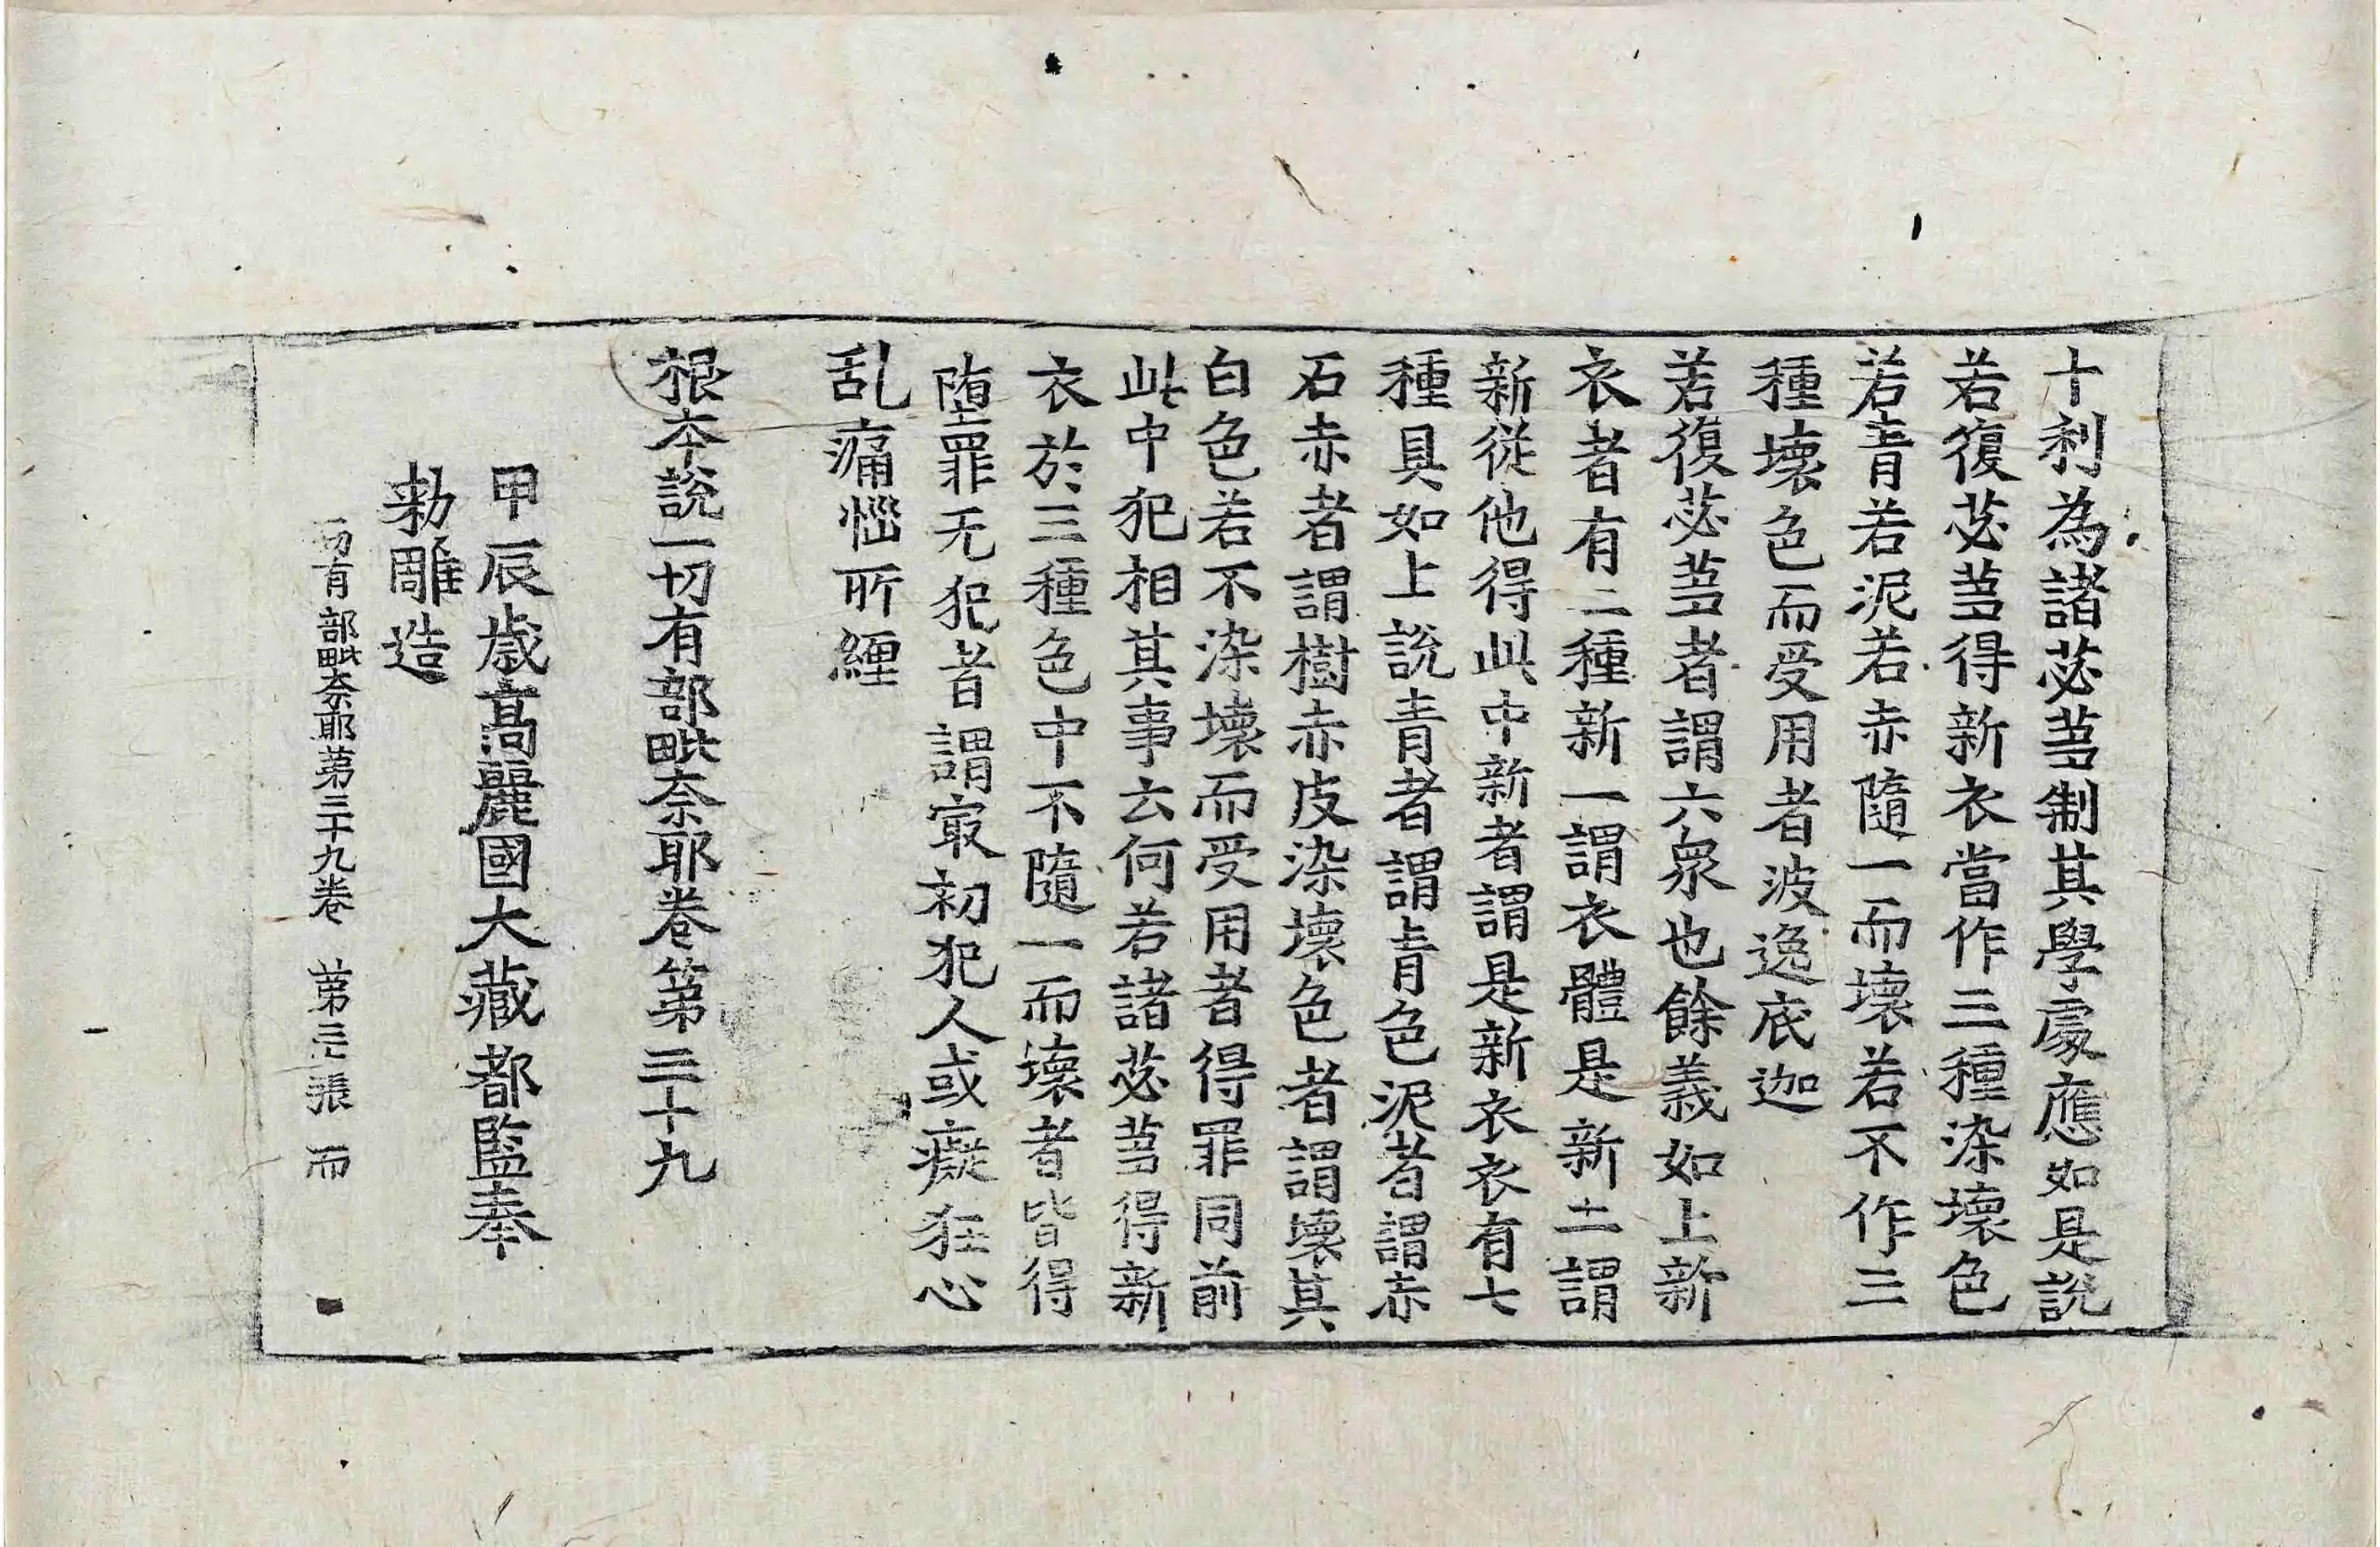 十利為諸苾芻制其學處應如是說
若復苾芻得新衣當作三種染壞色
若青若泥若赤隨一而壞若不作三
種壞色而受用者波逸底迦
若復苾芻者謂六衆也餘義如上新
衣者有二種新一謂衣體是新二謂
新從他得此中新者謂是新衣衣有七
種具如上說青者謂青色泥者謂赤
石赤者謂樹赤皮染壞色者謂壞其
白色若不染壞而受用者得罪同前
此中犯相其事云何若諸苾芻得新
衣於三種色中不隨一而壞者皆得
墮罪无犯者謂㝡初犯人或癡狂心
乱痛惱所纏
根本說一切有部毗奈耶卷第三十九
甲辰歲高麗國大藏都監奉
勑雕造
一切有部毗奈耶第三十九卷　第三張　而